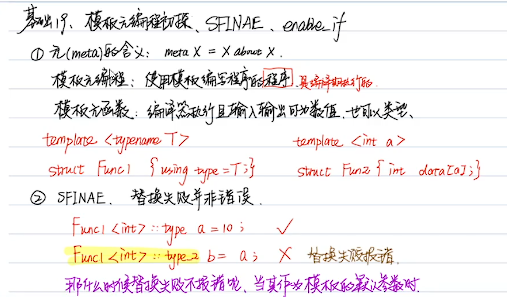 基础19、模板元编程初探、SFINAE、enable_if
① 元(meta)的含义: meta X = X about X.
模板元编程: 使用模板编写程序的程序. 是编译时执行的
模板元函数: 编译器执行且输入输出可为数值,也可以类型、
template <typename T> template <int a>
struct Func1 {using type=T;} struct Fun2 { int data[a];}
② SFINAE. 替换失败并非错误.
Func1 <int> :: type a = 10; ✓
Func1 <int> :: type_2 b = a; ✗ 替换失败报错.
那什么时候替换失败不报错呢、当其作为模板的默认参数时.